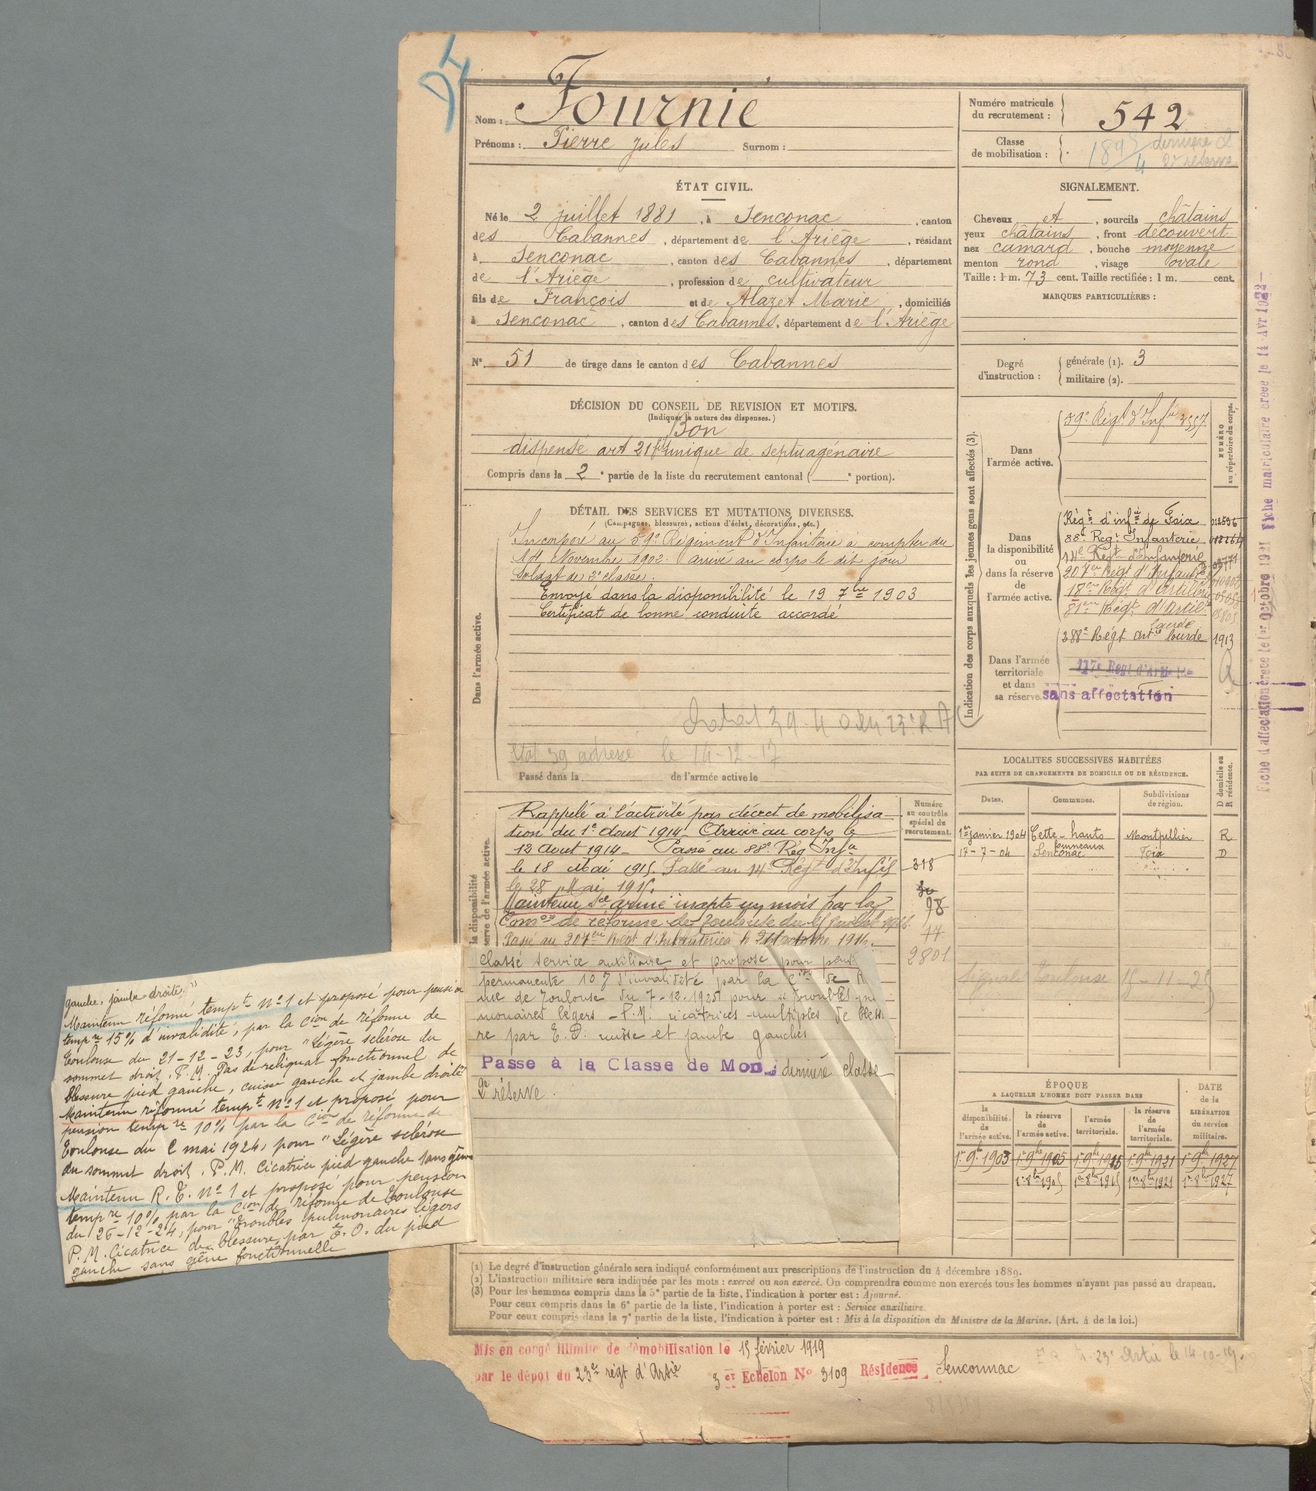 Nom : Fournié
Prénoms : Pierre Jules Surnom :
Numéro matricule du recrutement : 542
Classe de mobilisation :
ÉTAT CIVIL.
Né le 2 juillet 1881, à Senconac, canton
des Cabannes, département de l'Ariège, résidant
à Senconac, canton des Cabannes, département
de l'Ariège, profession de cultivateur
fils de François et de Alazet Marie, domiciliés
à Senconac, canton des Cabannes, département de l'Ariège
N° 51 de tirage dans le canton des Cabannes
DÉCISION DU CONSEIL DE REVISION ET MOTIFS.
(Indiquer la nature des dispenses.)
Bon
dispensé art 21 fils unique de septuagénaire
Compris dans la 2e partie de la liste du recrutement cantonal ( e portion).
DÉTAIL DES SERVICES ET MUTATIONS DIVERSES.
(Campagnes, blessures, actions d'éclat, décorations, etc.)
Dans l'armée active.
Incorporé au 59e Régiment d'Infanterie à compter du
14 Novembre 1902 arrivé au corps le dit jour
soldat de 2e classe.
Envoyé dans la disponibilité le 19 7bre 1903
Certificat de bonne conduite accordé
adressé le 14-12-17
Passé dans la de l'armée active le
Rappelé à l'activité par décret de mobilisa-
tion du 1er Aout 1914. Arrivé au corps le
12 Aout 1914 - Passé au 88e Rég Infie
le 18 mai 1915. Passé au 14e Régt d'Infie
le 28 Mai 1915.
Maintenu Sce armé inapte mois par la
Comon de réforme de Toulouse du
Passé au 207me Régt d'Infanterie le 1916.
Numéro au contrôle spécial du recrutement.
318
98
44
2801
Classé service auxiliaire et proposé pour pens
permanente 10 % d'invalidité par la Con de R
me de Toulouse du 7-12-1925 pour "troubles pul
monaires légers - P.M. cicatrices multiples de blessu
re par E.O. cuisse et jambe gauches
Passé à la Classe de Mob. dernière classe
2e réserve.
gauche, jambe droite."
Maintenu réformé tempre N°1 et proposé pour pension
tempre 15% d'invalidité, par la Cion de réforme de
Toulouse du 21-12-23, pour "Légère sclérose du
sommet droit. P.M. Pas de reliquat fonctionnel de
blessure pied gauche, cuisse gauche et jambe droite
Maintenu réformé tempre N°1 et proposé pour
pension tempre 10% par la Cion de réforme de
Toulouse du mai 1924, pour "Légère sclérose
du sommet droit. P.M. Cicatrice pied gauche sans gêne
Maintenu R.T. N°1 et proposé pour pension
tempre 10%, par la Cion de réforme de Toulouse
du 26-12-24, pour "Troubles pulmonaires légers
P.M. Cicatrice de blessure par E.O. du pied
gauche sans gêne fonctionnelle
SIGNALEMENT.
Cheveux et, sourcils châtains
yeux châtains, front découvert
nez camard, bouche moyenne
menton rond, visage ovale
Taille : 1 m. 73 cent. Taille rectifiée : 1 m. cent.
MARQUES PARTICULIÈRES :
Degré d'instruction : générale (1). 3
militaire (2).
Indication des corps auxquels les jeunes gens sont affectés (3).
NUMÉRO au répertoire du corps.
Dans l'armée active.
59e Régt d'Infie
Dans la disponibilité ou dans la réserve de l'armée active.
Régt d'infie de Foix
88e Régt Infanterie
14e Régt d'Infanterie
207me Régt d'Infanterie
18me Régt d'Artillerie
81me Régt d'Artie
Lourde
288e Régt Artie lourde 1913
Dans l'armée territoriale et dans sa réserve.
sans affectation
LOCALITÉS SUCCESSIVES HABITÉES
PAR SUITE DE CHANGEMENTS DE DOMICILE OU DE RÉSIDENCE.
Dates. Communes. Subdivisions de région. D domicile ou R résidence.
1er janvier 1904 Cette - hauts fourneaux Montpellier R
17-7-04 Senconac Foix D
Signalé Toulouse
ÉPOQUE
A LAQUELLE L'HOMME DOIT PASSER DANS
la disponibilité de l'armée active. la réserve de l'armée active. l'armée territoriale. la réserve de l'armée territoriale.
DATE de la LIBÉRATION du service militaire.
1er 9bre 1903 1er 9bre 1905 1er 9bre 1915 1er 9bre 1921 1er 9bre 1927
1er 8bre 1915 1er 8bre 1921 1er 8bre 1927
(1) Le degré d'instruction générale sera indiqué conformément aux prescriptions de l'instruction du 4 décembre 1889.
(2) L'instruction militaire sera indiquée par les mots : exercé ou non exercé. On comprendra comme non exercés tous les hommes n'ayant pas passé au drapeau.
(3) Pour les hommes compris dans la 5e partie de la liste, l'indication à porter est : Ajourné.
Pour ceux compris dans la 6e partie de la liste, l'indication à porter est : Service auxiliaire.
Pour ceux compris dans la 7e partie de la liste, l'indication à porter est : Mis à la disposition du Ministre de la Marine. (Art. 4 de la loi.)
Mis en congé illimité de démobilisation le 15 février 1919
par le dépôt du 23e régt d'Artie 3er Echelon N° 3109 Résidence Senconnac
Fiche d'affectation créée le 1er Octobre 1921 Fiche matriculaire créée le 14 Avr